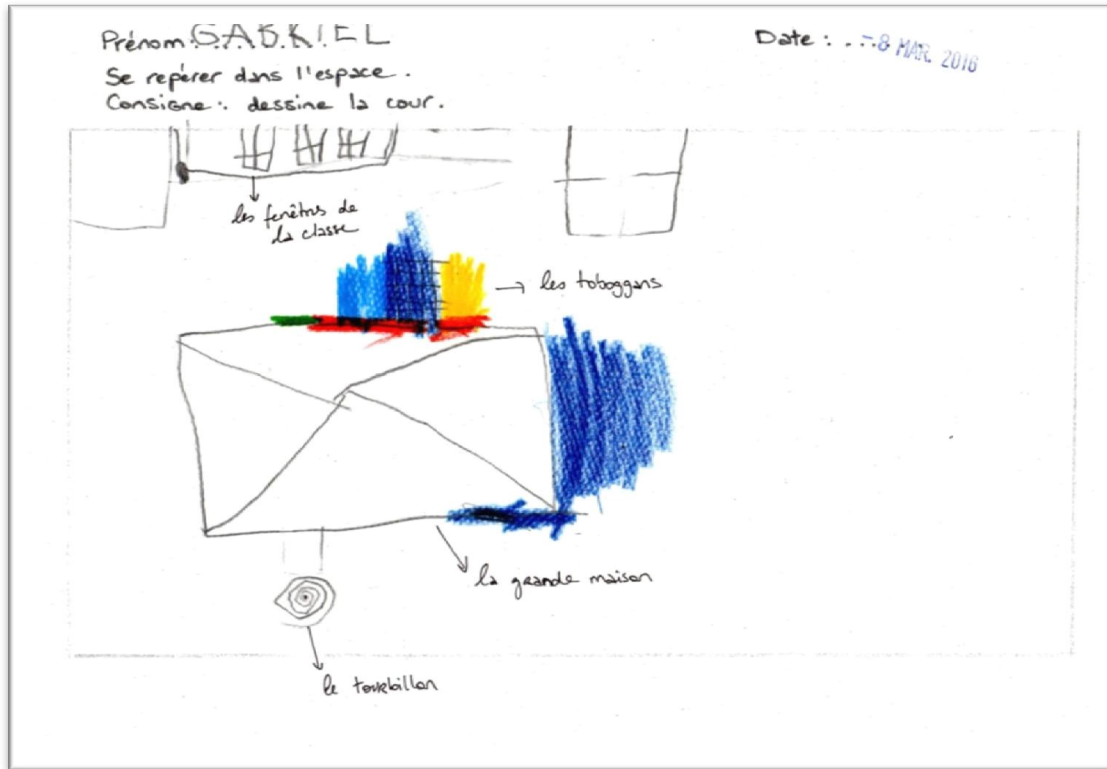 Prénom: GABRIEL
Date : ...-8 MAR. 2016
Se repérer dans l'espace.
Consigne : dessine la cour.
les fenêtres de
la classe
les toboggans
la grande maison
le tourbillon